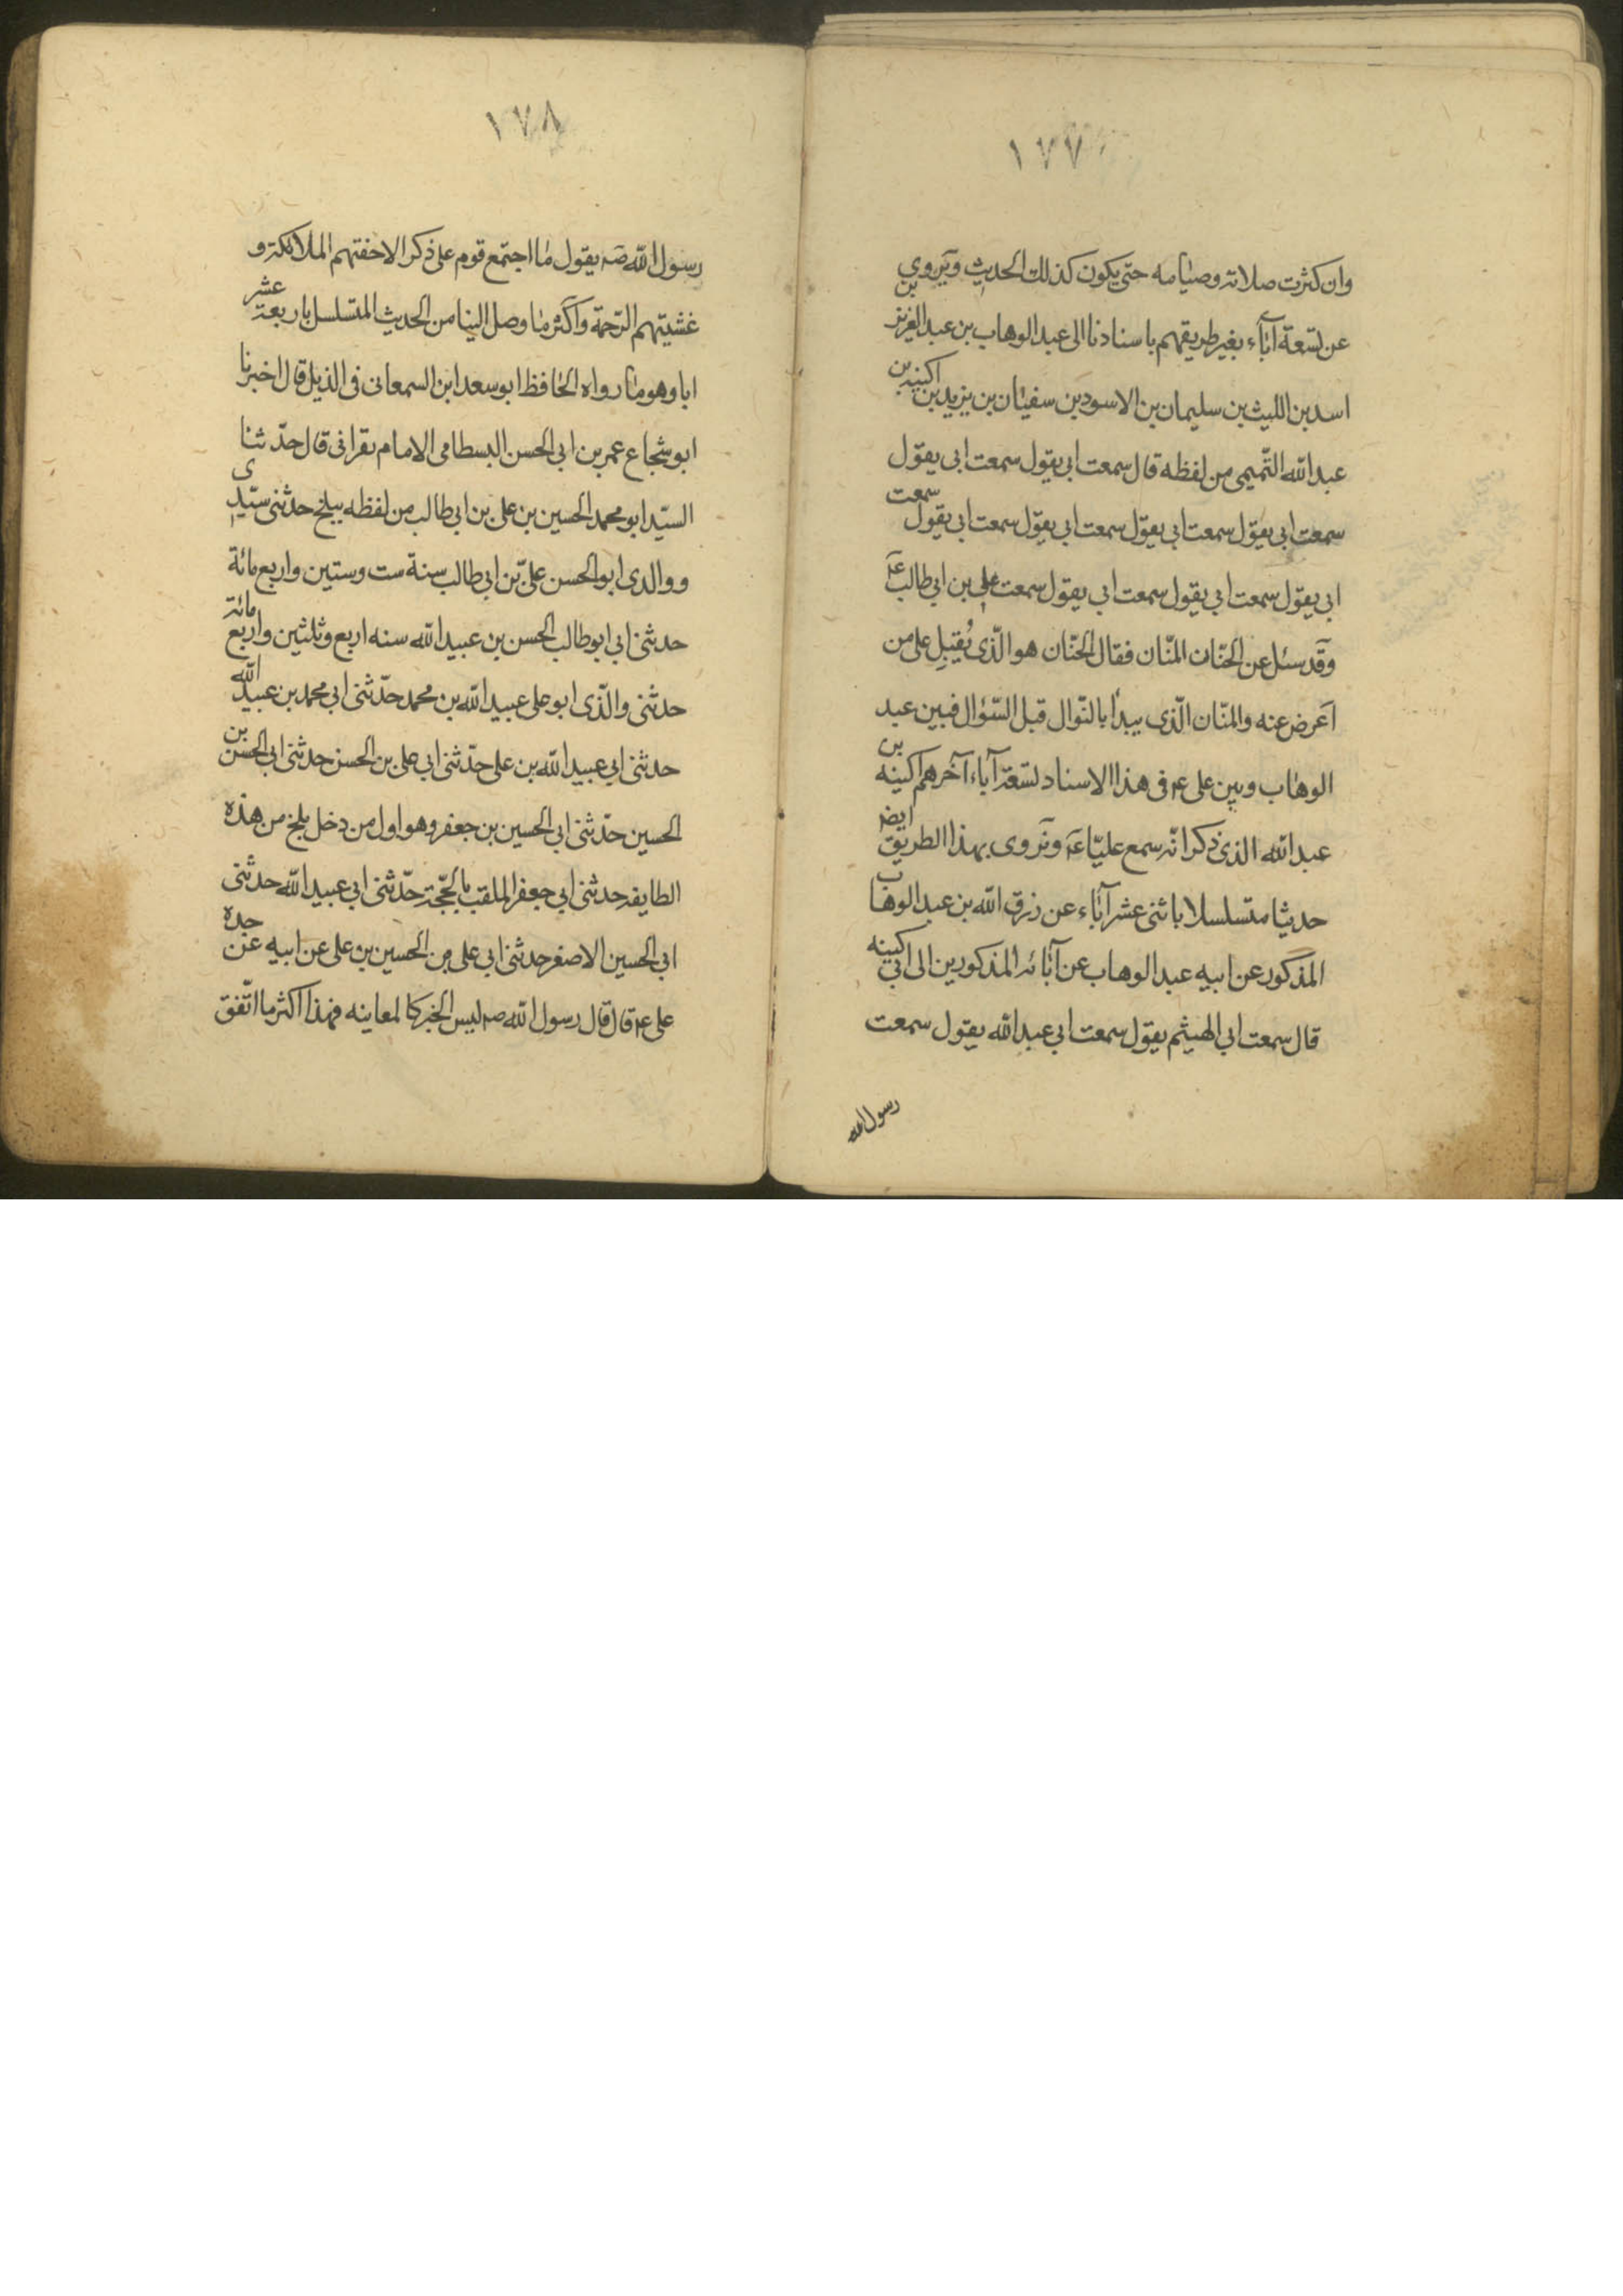 ١٧٧
وان كثرت صلاته وصيامه حتى يكون كذلك الحديث ونروى
عن تسعة آباء بغير طريقهم باسنادنا الى عبد الوهاب بن عبد العزيز بن
اسد بن الليث بن سليمان بن الاسود بن سفيان بن يزيد بن اكينه بن
عبد الله التميمى من لفظه قال سمعت ابى يقول سمعت ابى يقول
سمعت ابى يقول سمعت ابى يقول سمعت ابى يقول سمعت ابى يقول سمعت
ابى يقول سمعت ابى يقول سمعت ابى يقول سمعت على بن ابى طالب ع
وقد سئل عن الحنّان المنّان فقال الحنّان هو الّذى يُقبل على من
اعرض عنه والمنّان الّذى يبدأ بالنّوال قبل السّؤال فبين عبد
الوهاب وبين على ع فى هذا الاسناد تسعة آباء آخرهم اكينه بن
عبد الله الذى ذكر انّه سمع عليّا ع ونروى بهذا الطريق ايض
حديثا متسلسلا باثنى عشر آباء عن رزق الله بن عبد الوهاب
المذكور عن ابيه عبد الوهاب عن آبائه المذكورين الى ابى اكينه
قال سمعت ابى الهيثم يقول سمعت ابى عبد الله يقول سمعت
رسول الله
١٧٨
رسول الله ص يقول ما اجتمع قوم على ذكر الا حفتهم الملائكة و
غشيتهم الرّحمة واكثر ما وصل الينا من الحديث المتسلسل باربعة عشر
ابا وهو ما رواه الحافظ ابو سعد ابن السمعانى فى الذيل قال اخبرنا
ابو شجاع عمر بن ابى الحسن البسطامى الامام بقراتى قال حدّثنا
السيّد ابو محمد الحسين بن على بن ابى طالب من لفظه ببلخ حدثنى سيّدى
و والدى ابو الحسن علىّ بن ابى طالب سنة ست وستين واربع مائة
حدثنى ابى ابو طالب الحسن بن عبيد الله سنه اربع وثلثين واربع مائة
حدثنى والدى ابو على عبيد الله بن محمد حدّثنى ابى محمد بن عبيد الله
حدثنى ابى عبيد الله بن على حدّثنى ابى على بن الحسن حدثنى ابى الحسن بن
الحسين حدّثنى ابى الحسين بن جعفر وهو اول من دخل بلخ من هذه
الطايفه حدثنى ابى جعفر الملقب بالحجّة حدّثنى ابى عبيد الله حدثنى
ابى الحسين الاصغر حدثنى ابى على بن الحسين بن على عن ابيه عن جده
على ع قال قال رسول الله ص ليس الخبر كالمعاينه فهذا اكثر ما اتّفق